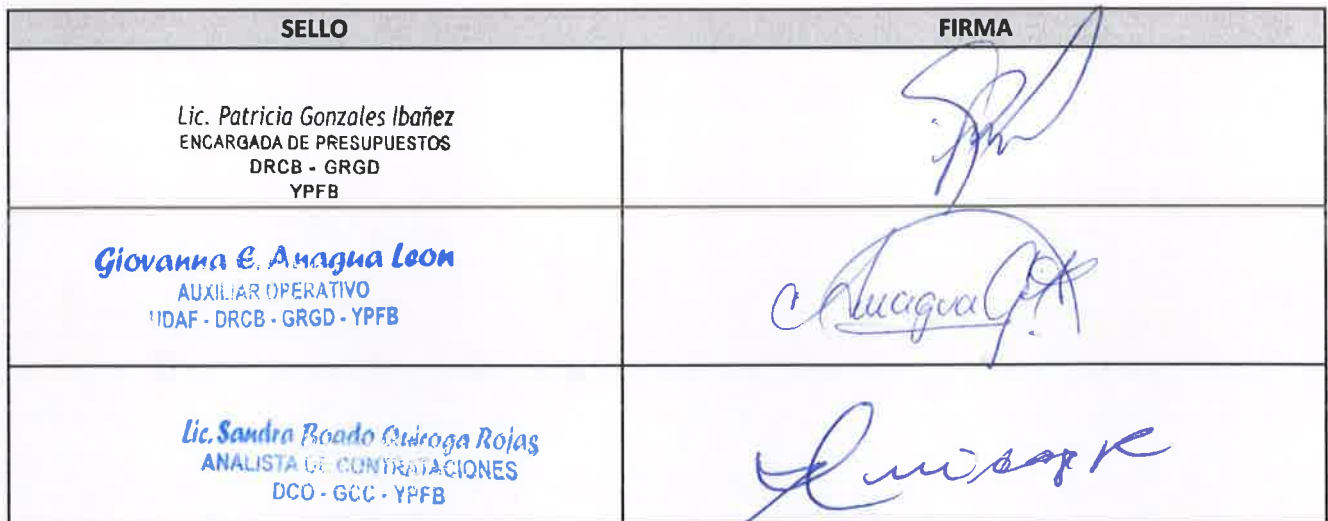 SELLO FIRMA
Lic. Patricia Gonzales Ibañez
ENCARGADA DE PRESUPUESTOS
DRCB - GRGD
YPFB
Giovanna E. Anagua Leon
AUXILIAR OPERATIVO
UDAF - DRCB - GRGD - YPFB
Lic. Sandra Quiroga Rojas
ANALISTA DE CONTRATACIONES
DCO - GCC - YPFB